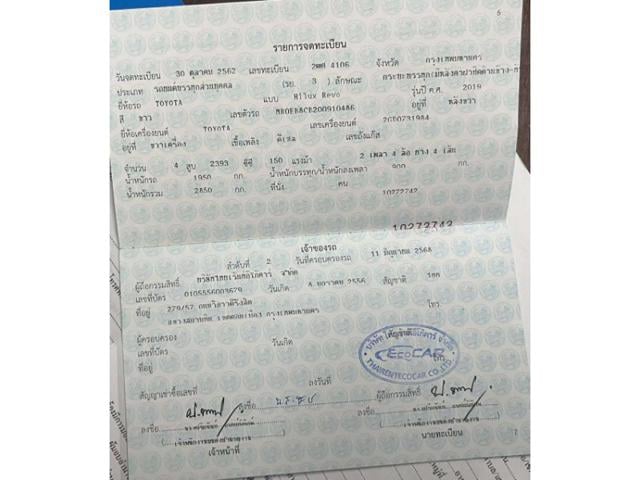 6
รายการจดทะเบียน
วันจดทะเบียน 30 ตุลาคม 2562 เลขทะเบียน 4106 จังหวัด กรุงเทพมหานคร
ประเภท รถยนต์บรรทุกส่วนบุคคล (รย. 3 ) ลักษณะ กระบะบรรทุก
ยี่ห้อรถ TOYOTA แบบ Hilux Revo รุ่นปี ค.ศ. 2019
สี ขาว เลขตัวรถ อยู่ที่
ยี่ห้อเครื่องยนต์ TOYOTA เลขเครื่องยนต์
อยู่ที่ ขวาเครื่อง เชื้อเพลิง ดีเซล เลขถังแก๊ส
จำนวน 4 สูบ 2393 ซีซี 150 แรงม้า 2 เพลา 4 ล้อ ยาง 4 เส้น
น้ำหนักรถ 1950 กก. น้ำหนักบรรทุก/น้ำหนักลงเพลา 900 กก.
น้ำหนักรวม 2850 กก. ที่นั่ง คน
10272742
10272742
เจ้าของรถ
ลำดับที่ 2 วันที่ครอบครองรถ 11 มิถุนายน 2568
ผู้ถือกรรมสิทธิ์ จำกัด
เลขที่บัตร 0105556003679 วันเกิด 2556 สัญชาติ ไทย
ที่อยู่ 279/57 ถนนวิภาวดีรังสิต โทร.
แขวงสนามบิน เขตดอนเมือง กรุงเทพมหานคร
ผู้ครอบครอง
เลขที่บัตร วันเกิด
ที่อยู่
ECOCAR
THAIRENTECOCAR CO.,LTD.
สัญญาเช่าซื้อเลขที่ ลงวันที่
ลงชื่อ ผู้ถือกรรมสิทธิ์
ลงชื่อ
เจ้าหน้าที่ นายทะเบียน
7